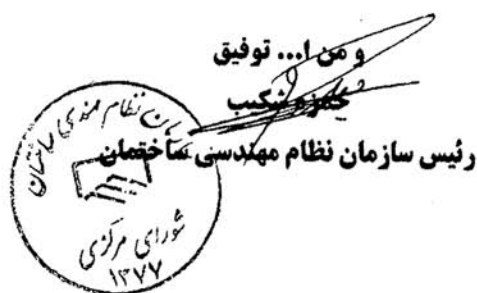 و من ا... توفیق
حمزه شکیب
رئیس سازمان نظام مهندسی ساختمان
سازمان نظام مهندسی ساختمان
شورای مرکزی
۱۳۷۷